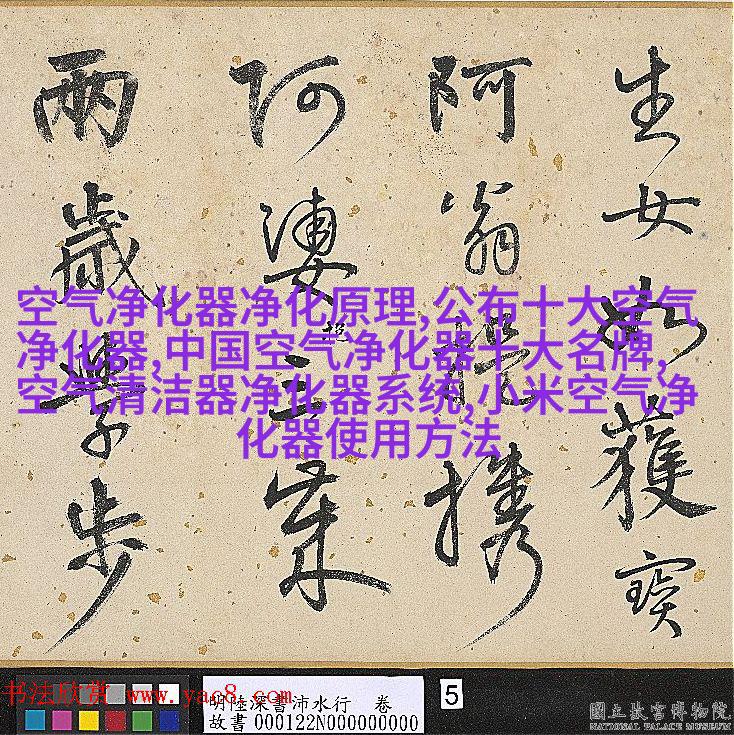 生女如獲寶
阿翁提攜
阿婆
兩歲學步
空气净化器净化原理,公布十大空气
净化器,中国空气净化器十大名牌,
空气清洁器净化器系统,小米空气净
化器使用方法
书法欣赏 www.yac8.com
明陸深書沛水行 卷
故書 000122N000000000
5
國立故宮博物院
NATIONAL PALACE MUSEUM